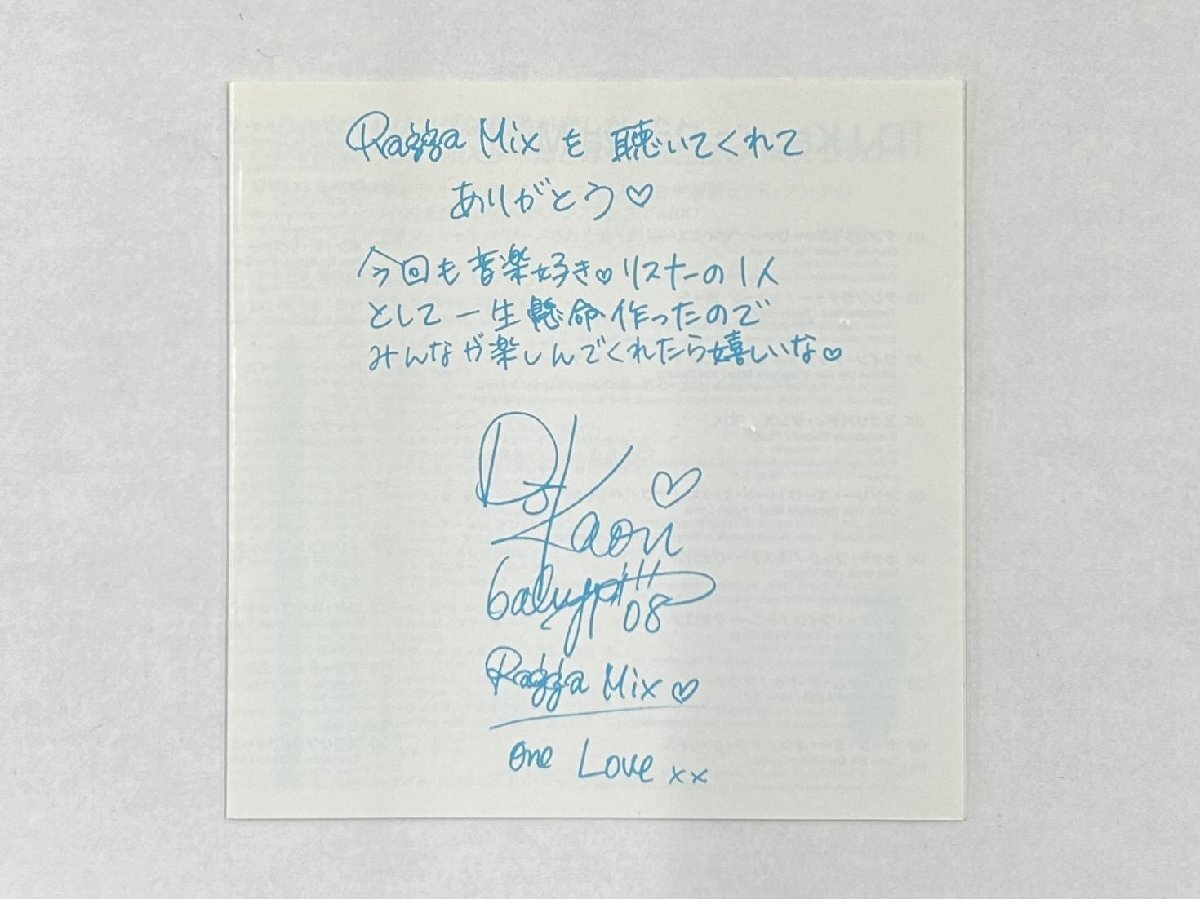 Ragga Mix も 聴いてくれて
ありがとう♡
今回も音楽好き♡リスナーの1人
として一生懸命作ったので
みんなが楽しんでくれたら嬉しいな♡
DJ Kaori ♡
08
Ragga Mix ♡
One Love xx